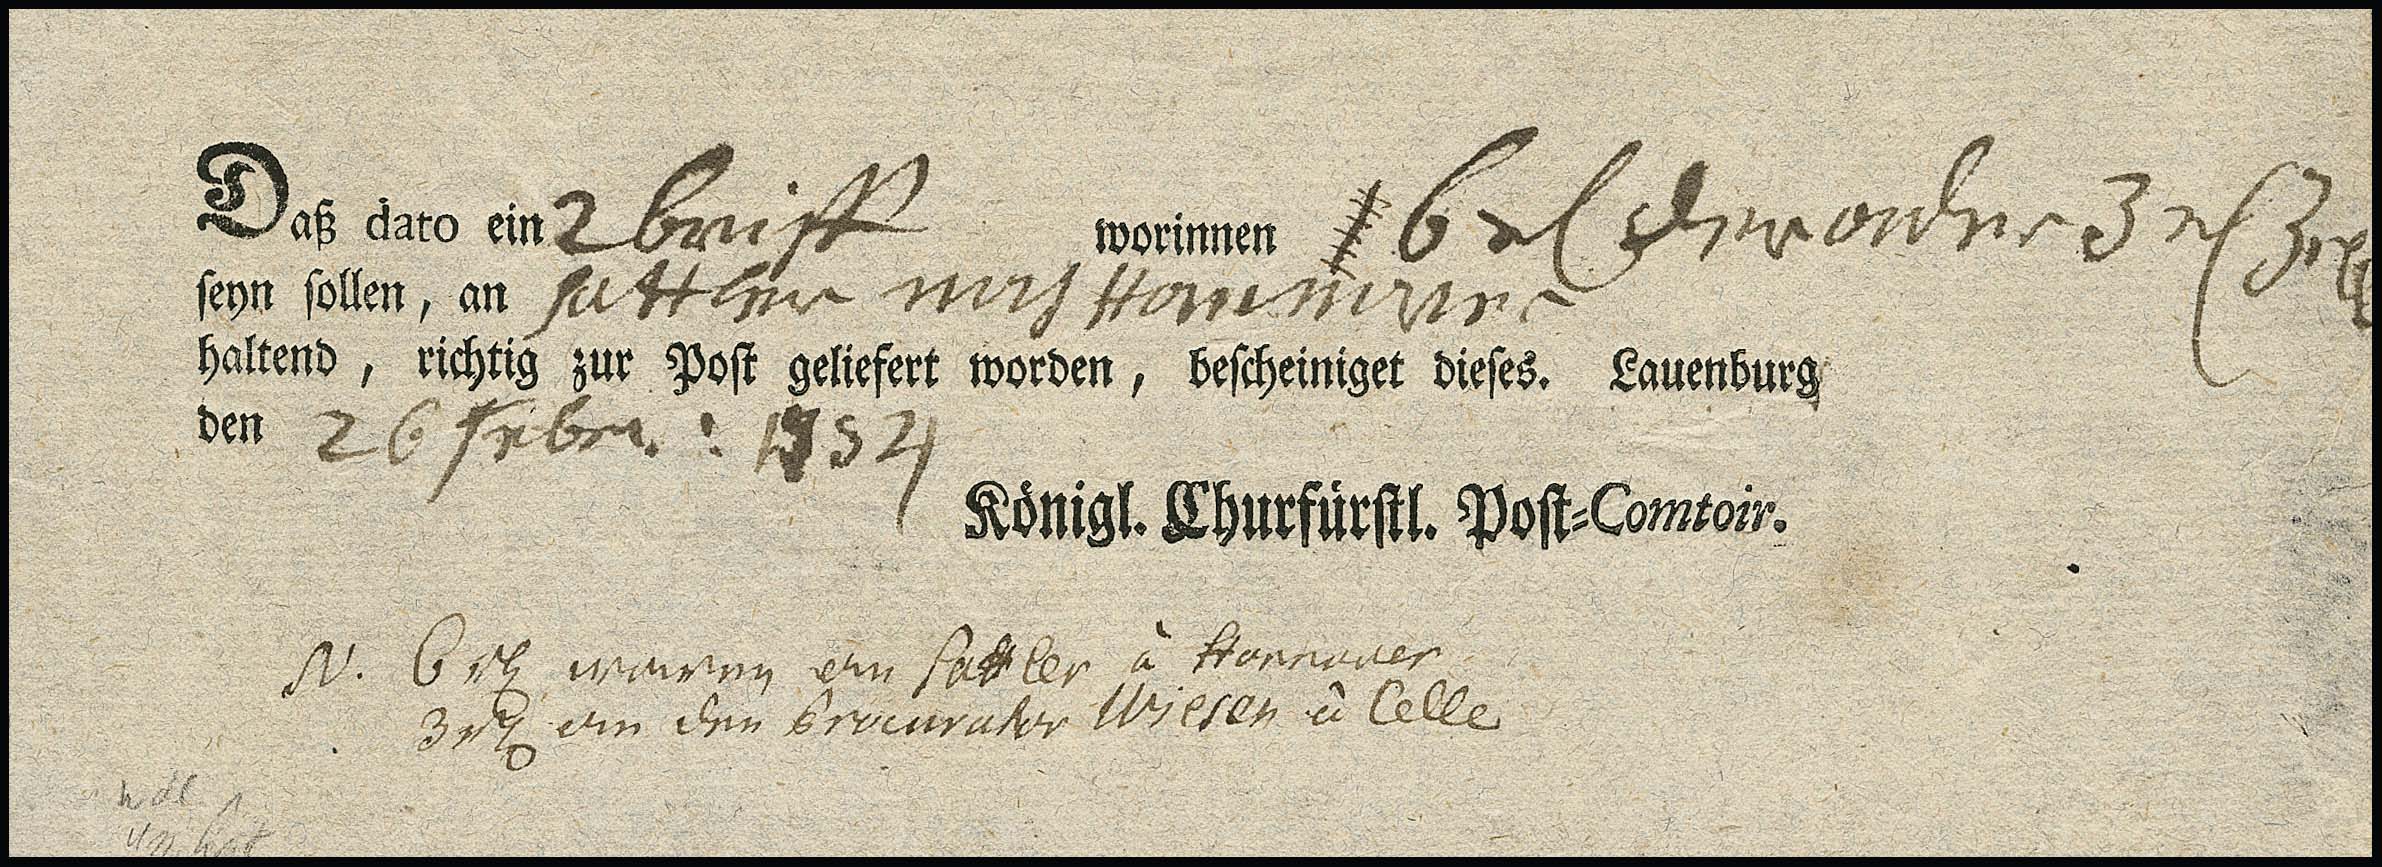 Daß dato ein 2 brieff worinnen 6 rl der ander 3 rl
seyn sollen, an Sattler nach Hannover
haltend, richtig zur Post geliefert worden, bescheiniget dieses. Lauenburg
den 26 Febru.: 1754
Königl. Churfürstl. Post=Comtoir.
N. 6 rl waren an Sattler à Hannover
3 rl an den Procurator Wiesen à Celle